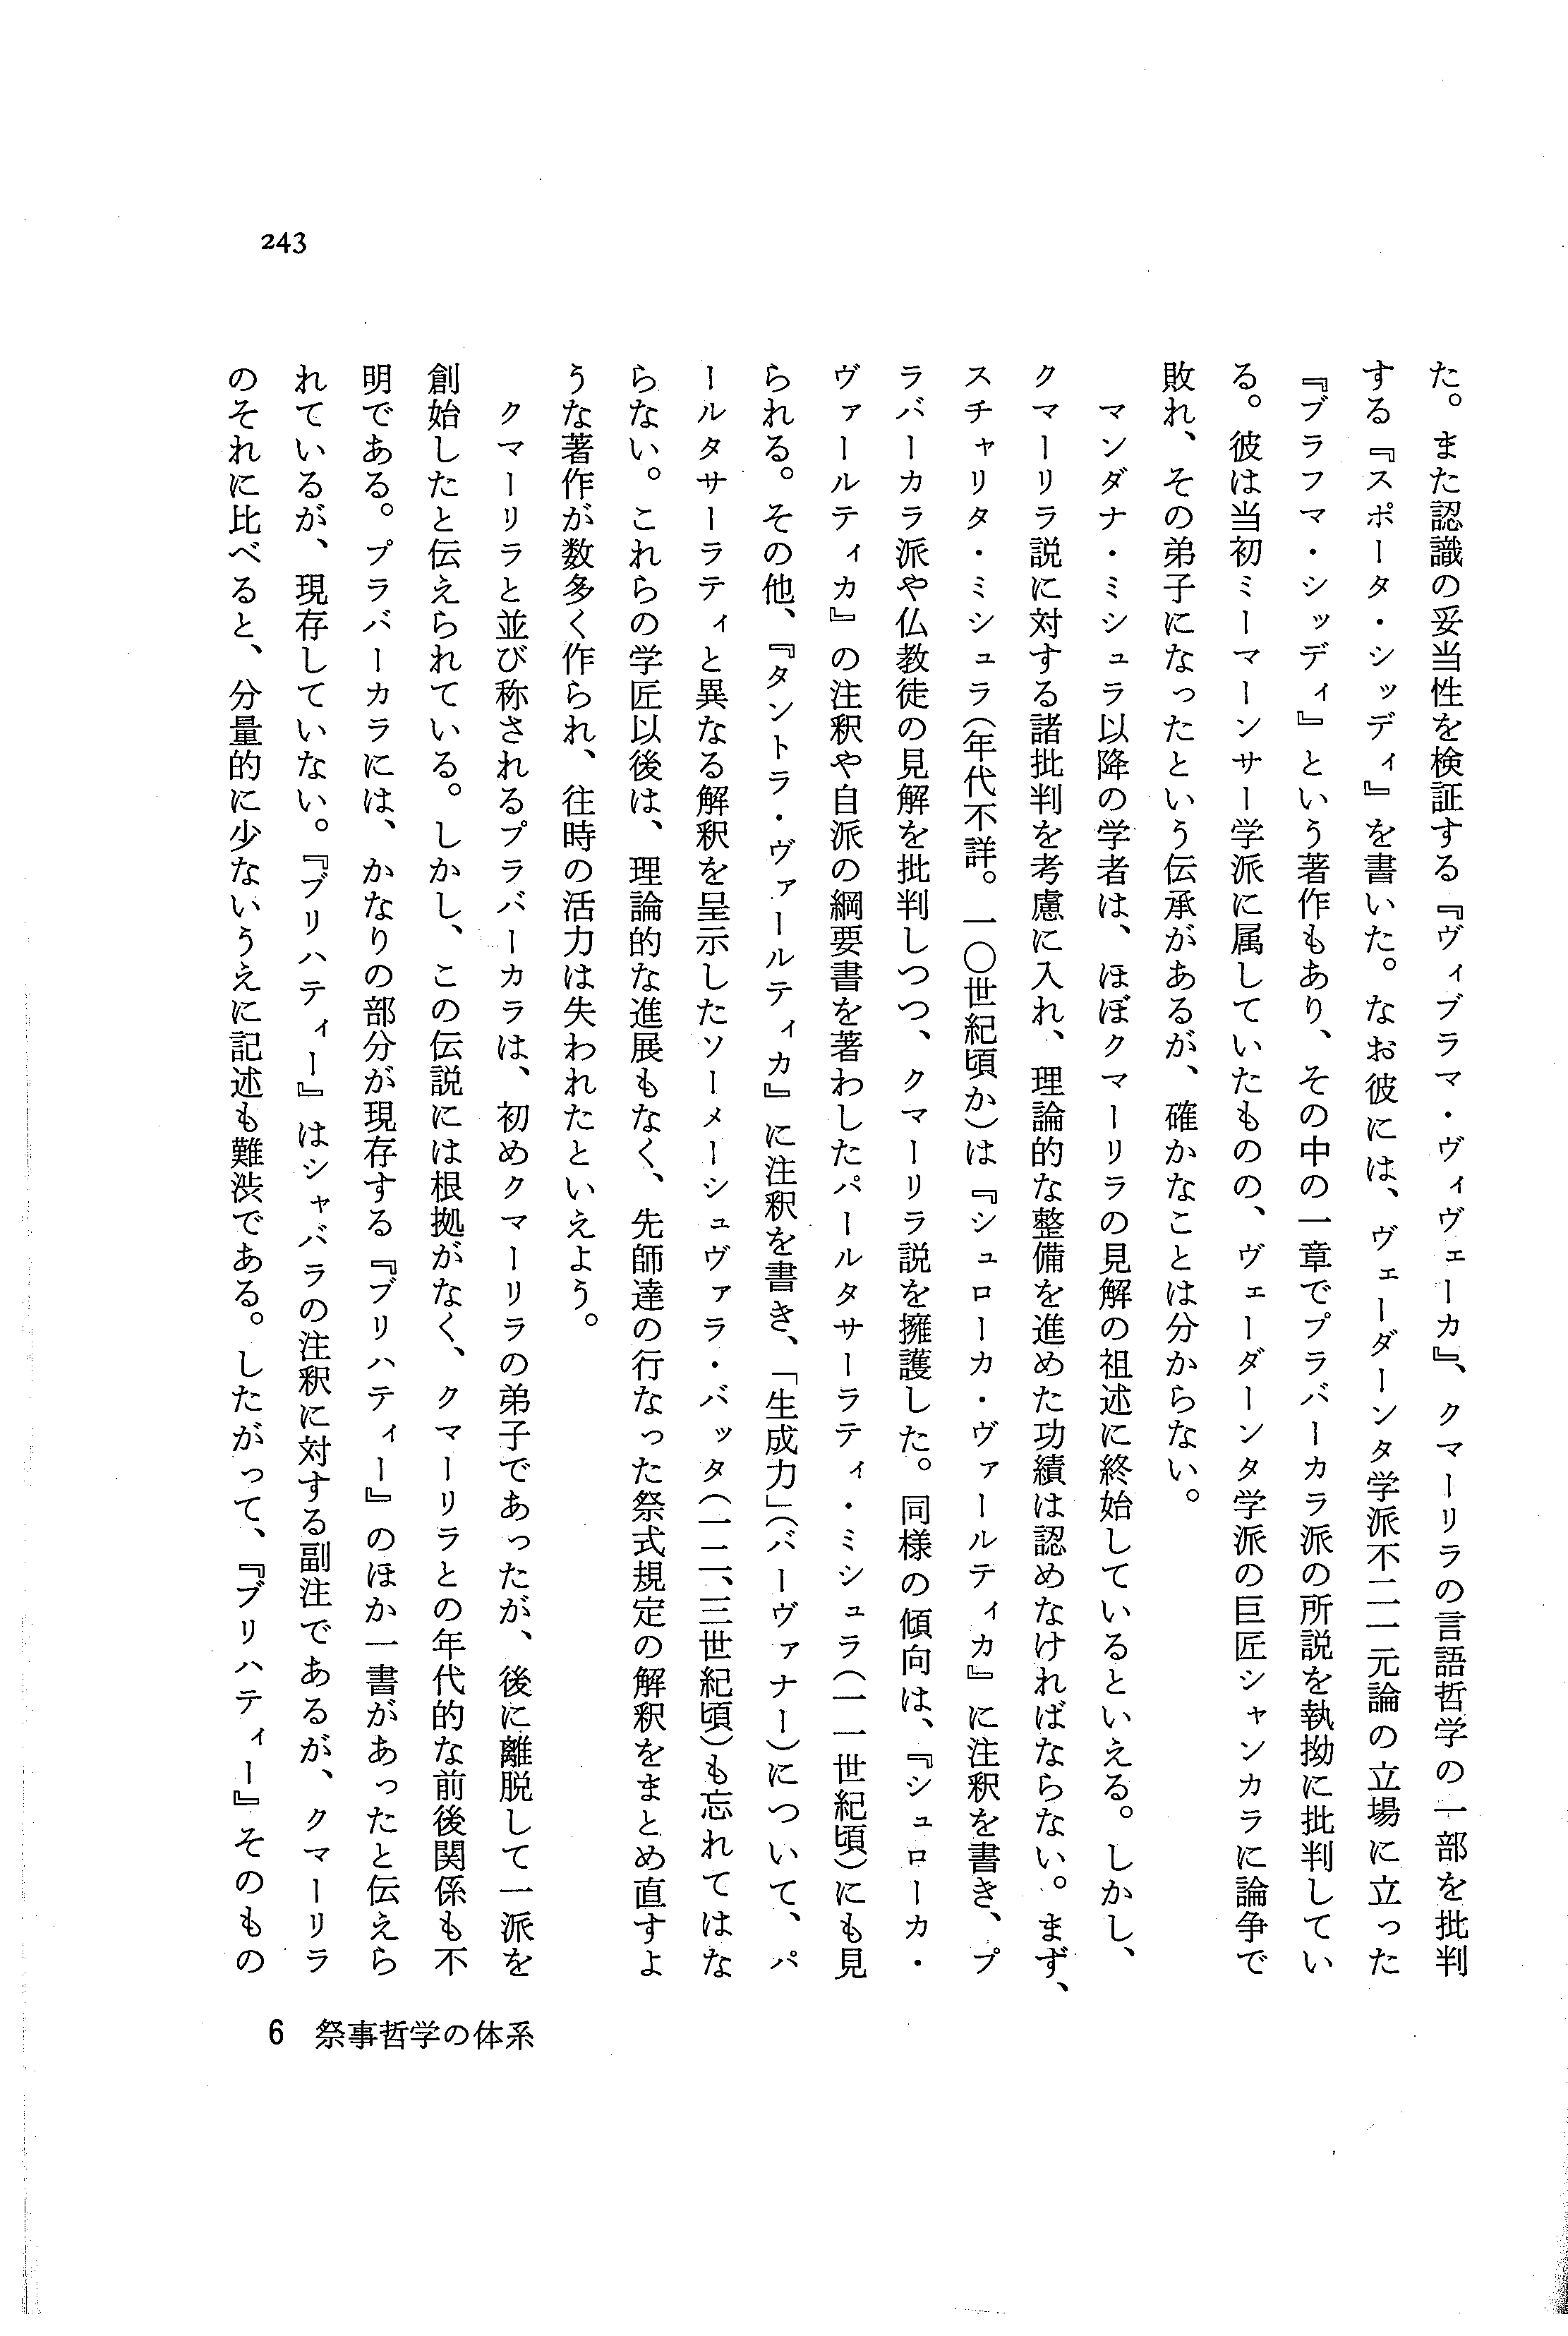 243
た。また認識の妥当性を検証する『ヴィブラマ・ヴィヴェーカ』、クマーリラの言語哲学の一部を批判
する『スポータ・シッディ』を書いた。なお彼には、ヴェーダーンタ学派不二一元論の立場に立った
『ブラフマ・シッディ』という著作もあり、その中の一章でプラバーカラ派の所説を執拗に批判してい
る。彼は当初ミーマーンサー学派に属していたものの、ヴェーダーンタ学派の巨匠シャンカラに論争で
敗れ、その弟子になったという伝承があるが、確かなことは分からない。
マンダナ・ミシュラ以降の学者は、ほぼクマーリラの見解の祖述に終始しているといえる。しかし、
クマーリラ説に対する諸批判を考慮に入れ、理論的な整備を進めた功績は認めなければならない。まず、
スチャリタ・ミシュラ(年代不詳。一〇世紀頃か)は『シュローカ・ヴァールティカ』に注釈を書き、プ
ラバーカラ派や仏教徒の見解を批判しつつ、クマーリラ説を擁護した。同様の傾向は、『シュローカ・
ヴァールティカ』の注釈や自派の綱要書を著わしたパールタサーラティ・ミシュラ(一一世紀頃)にも見
られる。その他、『タントラ・ヴァールティカ』に注釈を書き、「生成力」(バーヴァナー)について、パ
ールタサーラティと異なる解釈を呈示したソーメーシュヴァラ・バッタ(一二、三世紀頃)も忘れてはな
らない。これらの学匠以後は、理論的な進展もなく、先師達の行なった祭式規定の解釈をまとめ直すよ
うな著作が数多く作られ、往時の活力は失われたといえよう。
クマーリラと並び称されるプラバーカラは、初めクマーリラの弟子であったが、後に離脱して一派を
創始したと伝えられている。しかし、この伝説には根拠がなく、クマーリラとの年代的な前後関係も不
明である。プラバーカラには、かなりの部分が現存する『ブリハティー』のほか一書があったと伝えら
れているが、現存していない。『ブリハティー』はシャバラの注釈に対する副注であるが、クマーリラ
のそれに比べると、分量的に少ないうえに記述も難渋である。したがって、『ブリハティー』そのもの
6 祭事哲学の体系